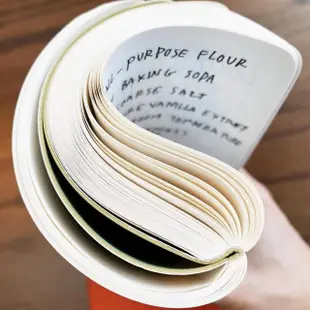 - PURPOSE FLOUR
BAKING SODA
ARSE SALT
RE VANILLA EXTRACT
TEMPERATURE